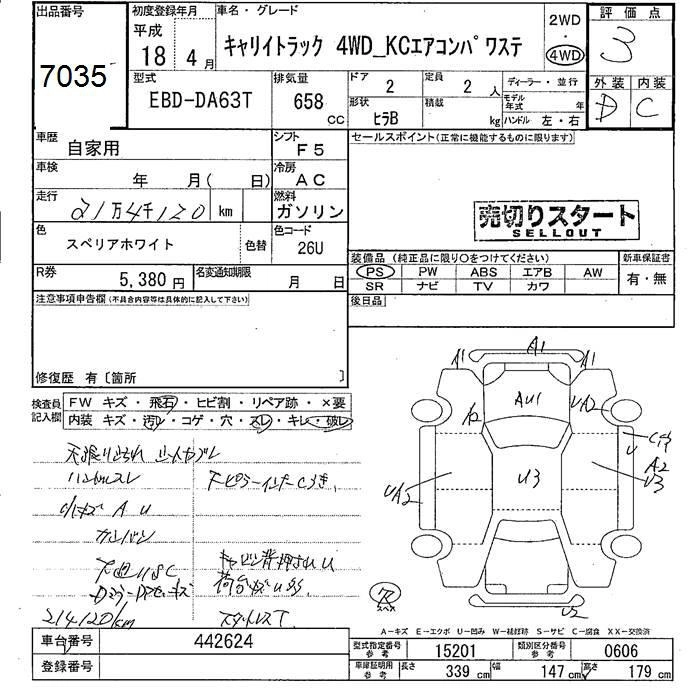 出品番号 初度登録年月 車名・グレード 2WD 評価点
7035 平成 18 4月 キャリイトラック 4WD_KCエアコンパワステ ・ 4WD 3
型式 排気量 ドア 2 定員 2人 ディーラー・並行 外装 内装
EBD-DA63T 658 cc 形状 ヒラB 積載 kg モデル年式 年 ハンドル 左・右 D C
車歴 自家用 シフト F5 セールスポイント(正常に機能するものに限ります)
車検 年 月( 日) 冷房 AC
走行 21万4千120 km 燃料 ガソリン
売切りスタート
SELLOUT
色 スペリアホワイト 色替 色コード 26U
装備品 (純正品に限り○をつけてください) 新車保証書
PS PW ABS エアB AW 有・無
SR ナビ TV カワ
R券 5,380円 名変通知期限 月 日
後日品
注意事項申告欄(不具合内容等は具体的に記入して下さい)
修復歴 有〔箇所 〕
検査員記入欄 FW キズ・飛石・ヒビ割・リペア跡・×要
内装 キズ・汚レ・コゲ・穴・スレ・キレ・破レ
A1 A1 A1
AU1 UA2 A2
U
U3 A2
UA2 U3
U2
ハンドルスレ
小キズ A U
カンバン
下廻りSC
214120km スタットレスT
A-キズ E-エクボ U-凹み W-補修跡 S-サビ C-腐食 XX-交換済
車台番号 442624 型式指定番号 参考 15201 類別区分番号 参考 0606
登録番号 車庫証明用 参考 長さ 339 cm 幅 147 cm 高さ 179 cm